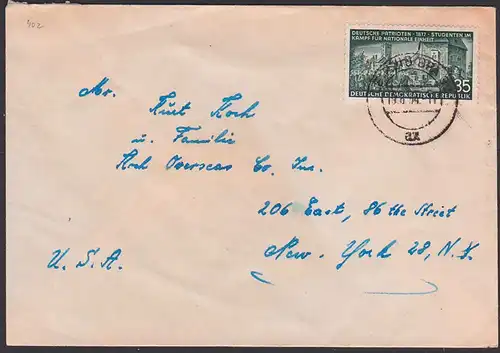 402
DEUTSCHE PATRIOTEN · 1817 · STUDENTEN IM
KAMPF FÜR NATIONALE EINHEIT
35
DEUTSCHE DEMOKRATISCHE REPUBLIK
ax
Mr.
Kurt Koch
u. Familie
Arch Overseas Co. Inc.
206 East, 86 the Street
New. York 28, N.Y.
U.S.A.